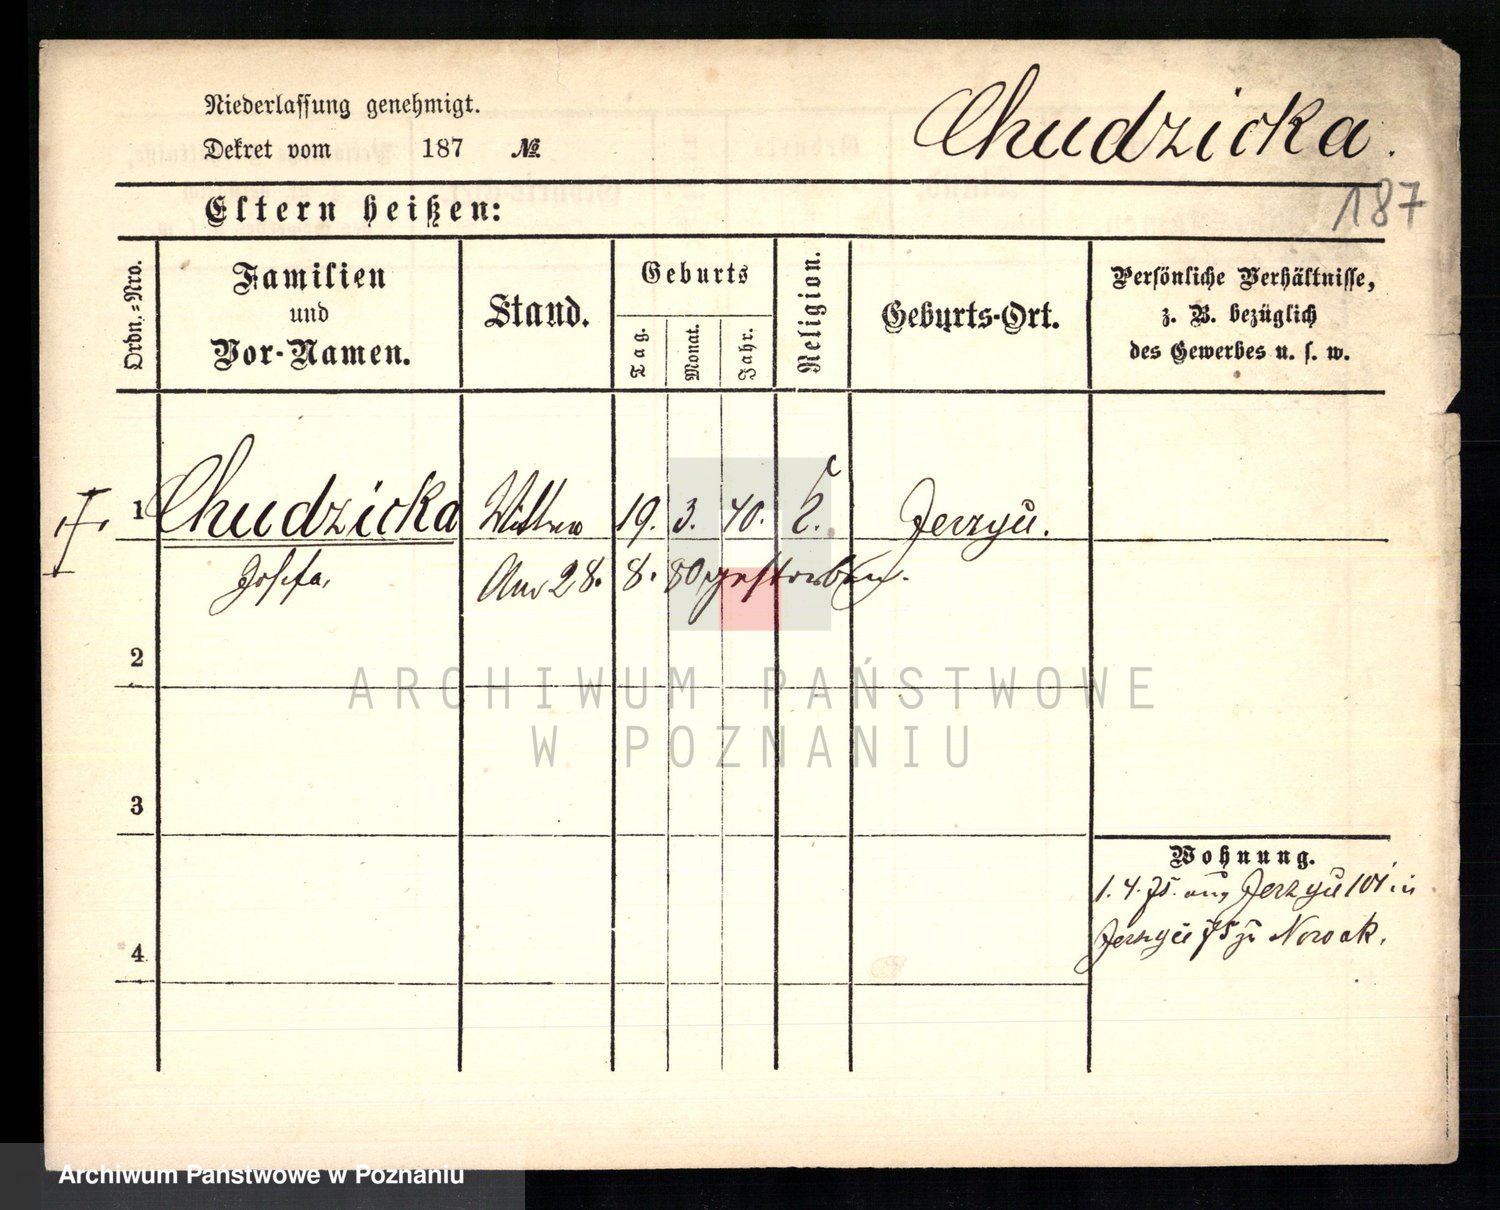 Niederlassung genehmigt.
Dekret vom 187 №
Chudzicka.
187
Eltern heißen:
Ordn.-Nro.
Familien
und
Vor-Namen.
Stand.
Geburts
Tag.
Monat.
Jahr.
Religion.
Geburts-Ort.
Persönliche Verhältnisse,
z. B. bezüglich
des Gewerbes u. s. w.
1 Chudzicka Wittwe 19. 3. 40. Jerzyce.
Josefa, Am 28. 8. 80 gestorben.
2
3
4
Wohnung.
1. 4. 75. aus Jerzyce 101 in
Jerzyce 75 zu Nowak.
ARCHIWUM PAŃSTWOWE
W POZNANIU
Archiwum Państwowe w Poznaniu